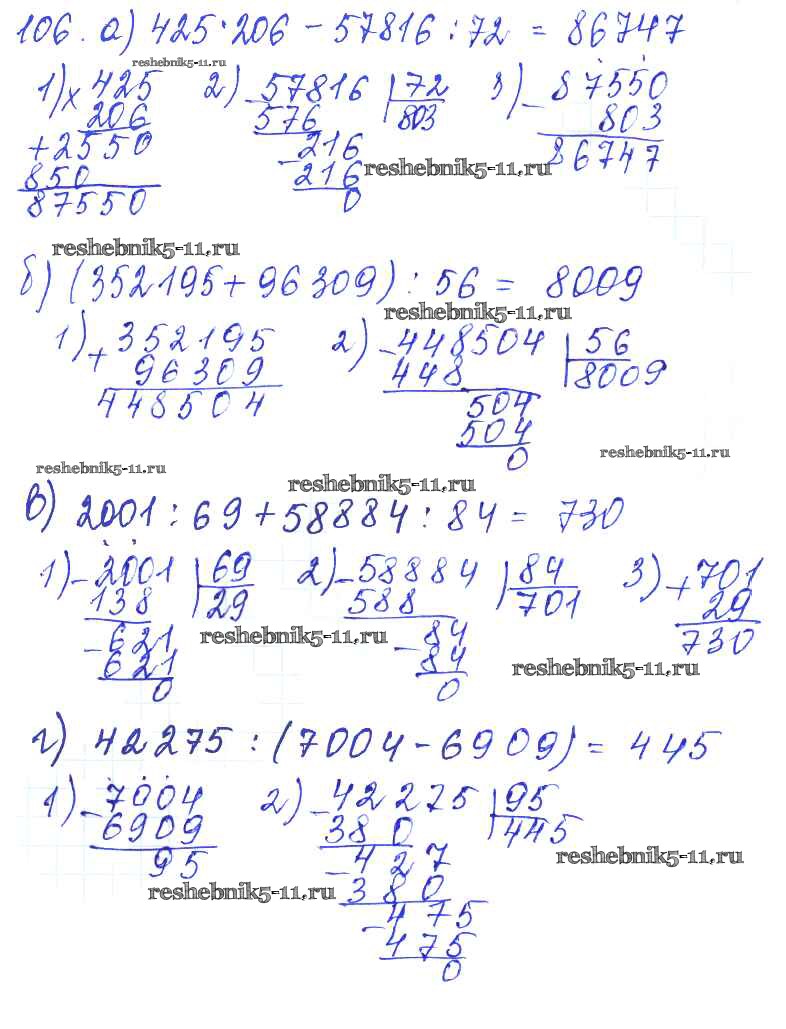 106. а) 425·206 - 57816 : 72 = 86747
reshebnik5-11.ru
1) × 425 2) - 57816 | 72 3) - 87550
206 576 803 803
+ 2550 - 216 86747
850 216 reshebnik5-11.ru
87550 0
reshebnik5-11.ru
б) (352195 + 96309) : 56 = 8009
reshebnik5-11.ru
1) + 352195 2) - 448504 | 56
96309 448 8009
448504 504
504
0 reshebnik5-11.ru
reshebnik5-11.ru
reshebnik5-11.ru
в) 2001 : 69 + 58884 : 84 = 730
1) - 2001 | 69 2) - 58884 | 84 3) + 701
138 29 588 701 29
- 621 reshebnik5-11.ru - 84 730
621 84 reshebnik5-11.ru
0 0
г) 42275 : (7004 - 6909) = 445
1) - 7004 2) - 42275 | 95
6909 380 445
95 - 427 reshebnik5-11.ru
reshebnik5-11.ru 380
- 475
475
0